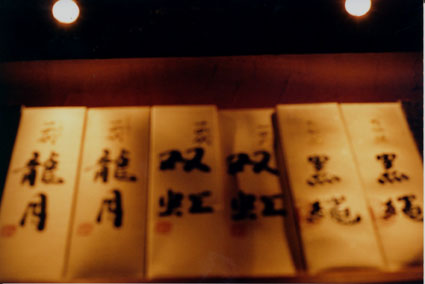 龍月
龍月
双虹
双虹
黒縄
黒縄